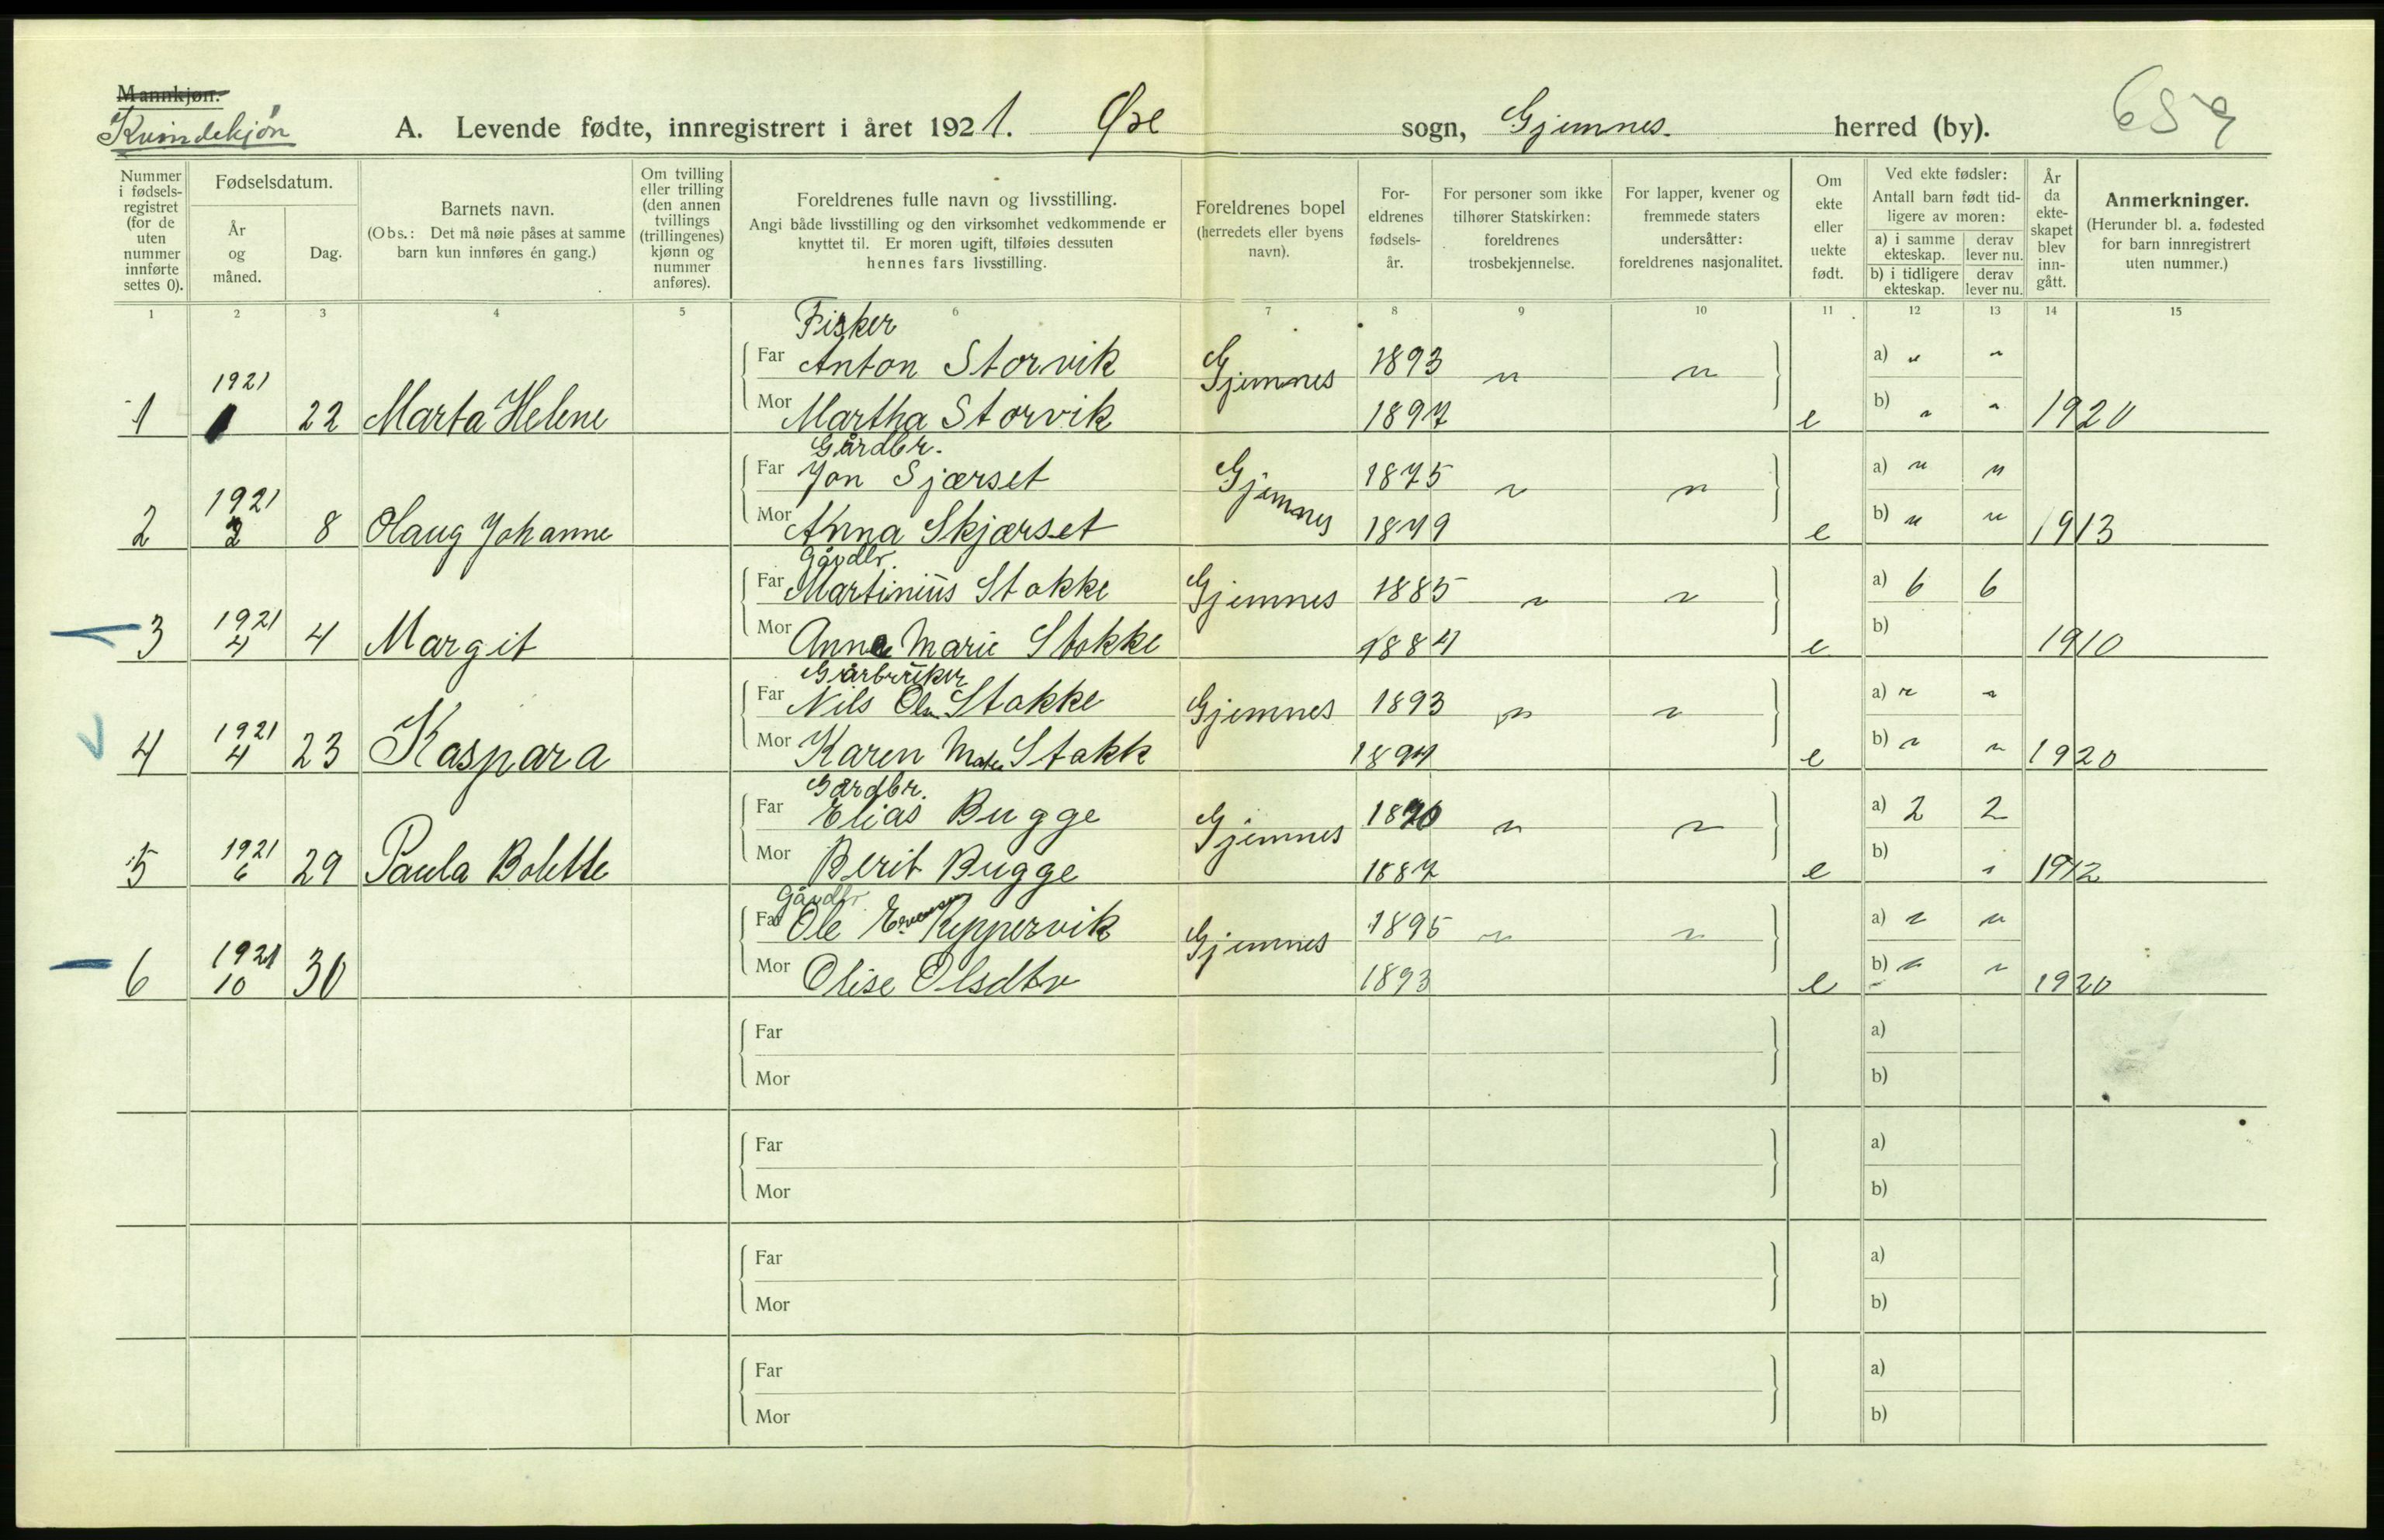 Mannkjøn.
Kvindekjøn
A. Levende fødte, innregistrert i året 1921. Øre sogn, Gjemnes. herred (by).
Nummer i fødselsregistret (for de uten nummer innførte settes 0).
Fødselsdatum.
År og måned.
Dag.
Barnets navn.
(Obs.: Det må nøie påses at samme barn kun innføres én gang.)
Om tvilling eller trilling (den annen tvillings (trillingenes) kjønn og nummer anføres).
Foreldrenes fulle navn og livsstilling.
Angi både livsstilling og den virksomhet vedkommende er knyttet til. Er moren ugift, tilføies dessuten hennes fars livsstilling.
Foreldrenes bopel (herredets eller byens navn).
Foreldrenes fødselsår.
For personer som ikke tilhører Statskirken: foreldrenes trosbekjennelse.
For lapper, kvener og fremmede staters undersåtter: foreldrenes nasjonalitet.
Om ekte eller uekte født.
Ved ekte fødsler:
Antall barn født tidligere av moren:
a) i samme ekteskap. derav lever nu.
b) i tidligere ekteskap. derav lever nu.
År da ekteskapet blev inngått.
Anmerkninger.
(Herunder bl. a. fødested for barn innregistrert uten nummer.)
1 2 3 4 5 6 7 8 9 10 11 12 13 14 15
Fisker
Far Anton Storvik Gjemnes 1893 " " a) " "
1 1921 1 22 Marta Helene Mor Martha Storvik 1897 e b) " " 1920
Gårdbr.
Far Jon Sjærset Gjemnes 1875 " " a) " "
2 1921 2 8 Olaug Johanne Mor Anna Skjærset 1879 e b) " " 1913
Gårdbr.
Far Martinius Stokke Gjemnes 1885 " " a) 6 6
3 1921 4 4 Margit Mor Anna Marie Stokke 1884 e b) 1910
Gårbruker
Far Nils Olsn Stokke Gjemnes 1893 " " a) " "
4 1921 4 23 Kaspara Mor Karen Stokk e b) " " 1920
Gårdbr.
Far Elias Bugge Gjemnes " " a) 2 2
5 1921 6 29 Paula Bolette Mor Berit Bugge 1887 e b) " 1912
Gårdbr
Far Ole Reppervik Gjemnes 1895 " " a) " "
6 1921 10 30 Mor Olise Olsdtr 1893 e b) " " 1920
Far a)
Mor b)
Far a)
Mor b)
Far a)
Mor b)
Far a)
Mor b)